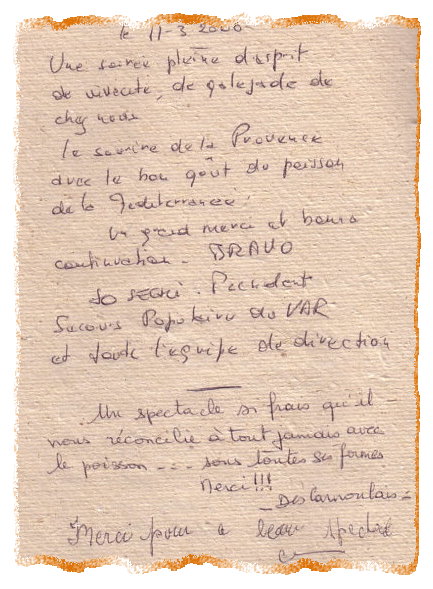 le 11-3 2000
Une soirée pleine d'esprit
de vivacité, de galejade de
chez nous
le sourire de la Provence
avec le bon goût du poisson
de la Mediterranée.
Un grand merci et bonne
continuation. BRAVO
Jo . President
Secours Populaire du VAR
et toute l'equipe de direction
Un spectacle si frais qu'il
nous réconcilie à tout jamais avec
le poisson --- sous toutes ses formes
Merci!!!
Merci pour ce beau spectacle